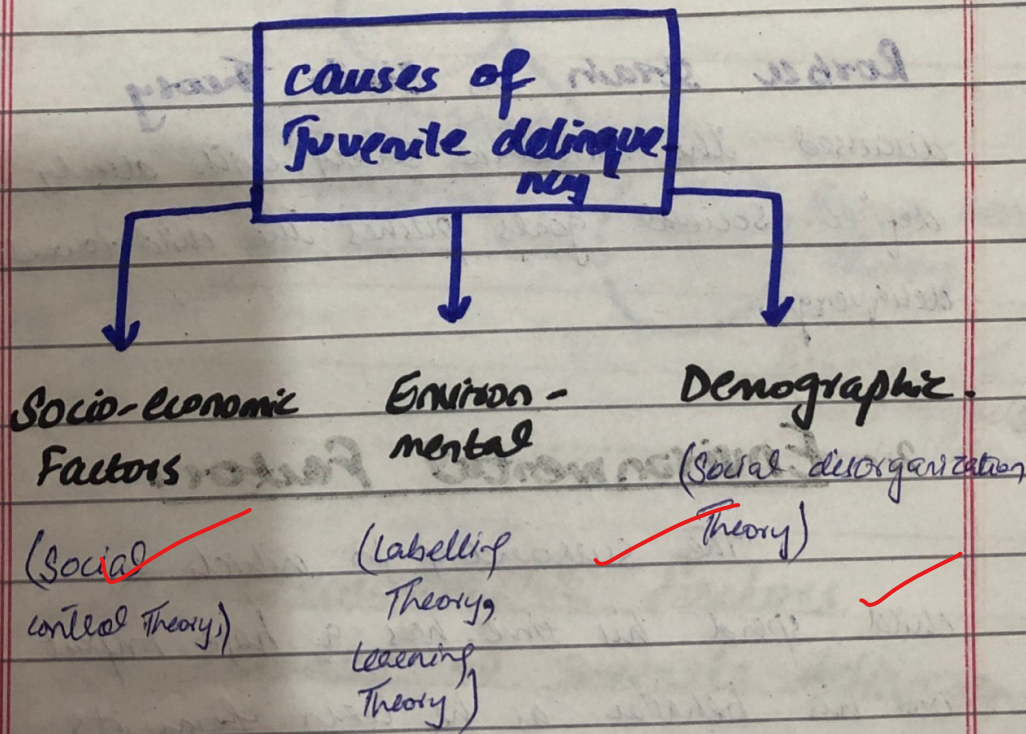 causes of
Juvenile delinque-
ncy
Socio-economic
Factors
(Social
control Theory,)
Environ-
mental
(Labelling
Theory,
learning
Theory)
Demographic.
(Social disorganization
Theory)